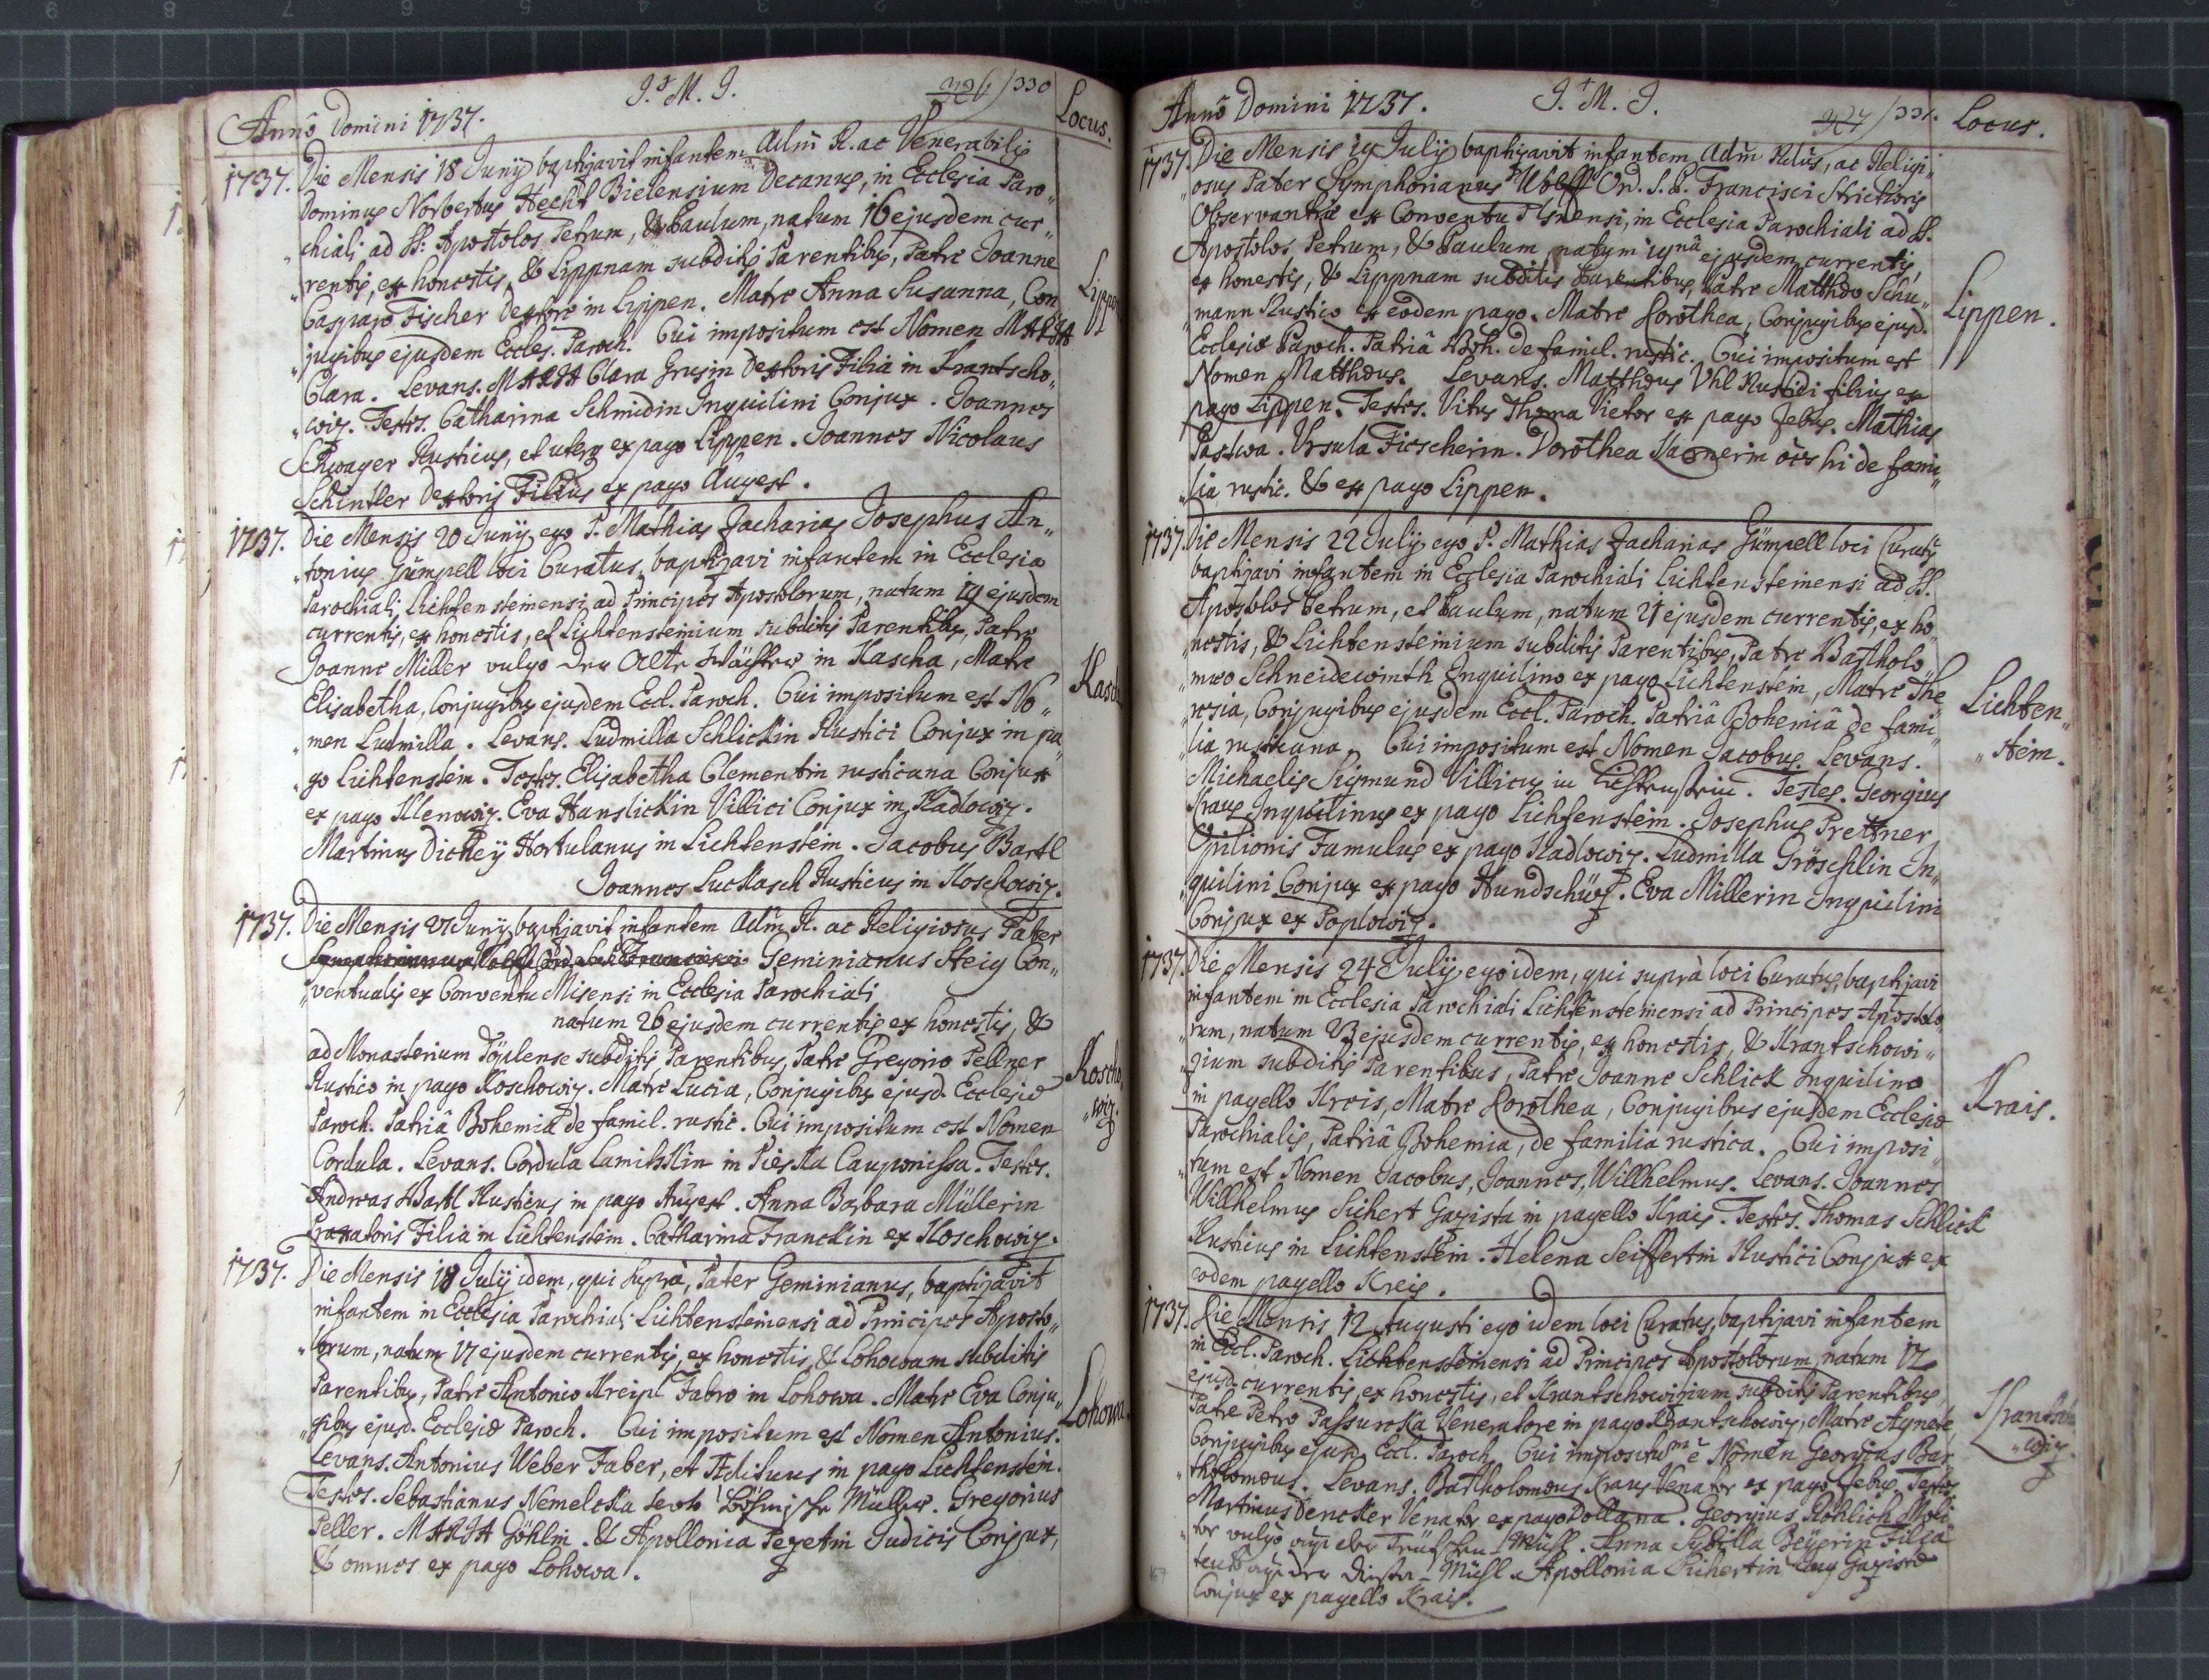 Anno Domini 1737.
J. M. J.
326/330
Locus.
1737. Die Mensis 18 Junÿ baptizavit infantem Adm̃ R. ac Venerabilis
Dominus Norbertus Hecht Bielensium Decanus, in Ecclesia Paro„
„chiali ad SS: Apostolos Petrum, & Paulum, natum 16 ejusdem cur„
„rentis, ex honestis, & Lippnam subditis Parentibus, Patre Joanne
Casparo Fischer Textore in Lippen. Matre Anna Susanna, Con„
„jugibus ejusdem Eccles. Paroch. Cui impositum est Nomen MARIA
Clara. Levans. MARIA Clara Grusin Textoris Filia in Krantscho„
„wiz. Testes. Catharina Schmidin Inquilini Conjux. Joannes
Schwager Rusticus, et uterq ex pago Lippen. Joannes Nicolaus
Schintler Textoris Filius ex pago Augest.
Lippen
1737. Die Mensis 20 Junÿ ego P. Mathias Zacharias Josephus An„
„tonius Gümpell loci Curatus, baptizavi infantem in Ecclesia
Parochiali Lichtensteinensi ad Principes Apostolorum, natum 19 ejusdem
currentis, ex honestis, et Lichtensteinium subditis Parentibus, Patre
Joanne Miller vulgo der Alte Wächter in Kascha, Matre
Elisabetha, Conjugibus ejusdem Eccl. Paroch. Cui impositum est No„
„men Ludmilla. Levans. Ludmilla Schlickin Rustici Conjux in pa„
„go Lichtenstein. Testes. Elisabetha Clementin rusticana Conjux
ex pago Klenowiz. Eva Hanslickin Villici Conjux in Kadlowiz.
Martinus Dickeÿ Hortulanus in Lichtenstein. Jacobus Bartl
Joannes Luckasch Rusticus in Koschowiz.
Kasch
1737. Die Mensis 27 Junÿ baptizavit infantem Adm̃ R. ac Religiosus Pater
Geminianus Steig Con„
„ventualis ex Conventu Misensi in Ecclesia Parochiali
natum 26 ejusdem currentis ex honestis, &
ad Monasterium Töplense subditis Parentibus, Patre Gregorio Pellner
Rustico in pago Koschowiz. Matre Lucia, Conjugibus ejusd. Ecclesiæ
Paroch. Patriâ Bohemiâ de famil. rustic. Cui impositum est Nomen
Cordula. Levans. Cordula Lamihskin in Pieska Cauponissa. Testes.
Andreas Bartl Rusticus in pago Augest. Anna Barbara Müllerin
Braxatoris Filia in Lichtenstein. Catharina Franckin ex Koschowiz.
Koscho„
„wiz.
1737. Die Mensis 18 Julÿ idem, qui suprà, Pater Geminianus, baptizavit
infantem in Ecclesia Parochiali Lichtensteinensi ad Principes Aposto„
„lorum, natum 17 ejusdem currentis, ex honestis, & Lohowam subditis
Parentibus, Patre Antonio Kreipl Fabro in Lohowa. Matre Eva Conju„
„gibus ejusd. Ecclesiæ Paroch. Cui impositum est Nomen Antonius.
Levans. Antonius Weber Faber, et Ædituus in pago Lichtenstein.
Testes. Sebastianus Nemelcka Böhmische Müller. Gregorius
Peller. MARIA Göhlin. & Apollonia Pezetin Judicis Conjux,
& omnes ex pago Lohowa.
Lohowa.
Anno Domini 1737.
J. M. J.
327/331.
Locus.
1737. Die Mensis 19 Julÿ baptizavit infantem Adm̃ Rdus, ac Religi„
„osus Pater Symphorianus Wolff Ord. S. P. Francisci Strictioris
Observantiæ ex Conventu Plsnensi, in Ecclesia Parochiali ad SS.
Apostolos Petrum, & Paulum, natum 19nâ ejusdem currentis,
ex honestis, & Lippnam subditis Parentibus, Patre Matthæo Schu„
„mann Rustico ex eodem pago. Matre Dorothea, Conjugibus ejusd.
Ecclesiæ Paroch. Patriâ Boh. de famil. rustic. Cui impositum est
Nomen Matthæus. Levans. Matthæus Uhl Rustici filius ex
pago Lippen. Testes. Vitus Thoma Vietor ex pago Zebus. Mathias
Pastwa. Ursula Fiescherin. Dorothea Wagnerin oẽs hi de fami„
„lia rustic. & ex pago Lippen.
Lippen.
1737. Die Mensis 22 Julÿ ego P. Mathias Zacharias Gümpell loci Curatus
baptizavi infantem in Ecclesia Parochiali Lichtensteinensi ad SS.
Apostolos Petrum, et Paulum, natum 21 ejusdem currentis, ex ho„
„nestis, & Lichtensteinium subditis Parentibus, Patre Bartholo„
„mæo Schneidewinth Inquilino ex pago Lichtenstein, Matre The„
„resia, Conjugibus ejusdem Eccl. Paroch. Patriâ Bohemiâ de fami„
„lia rusticana. Cui impositum est Nomen Jacobus. Levans.
Michaelis Sigmund Villicus in Lichtenstein. Testes. Georgius
Kraus Inquilinus ex pago Lichtenstein. Josephus Prettner
Opilionis Famulus ex pago Kadlowiz. Ludmilla Gröschlin In„
„quilini Conjux ex pago Hundschüz. Eva Millerin Inquilini
Conjux ex Poplowiz.
Lichten„
„stein.
1737. Die Mensis 24 Julÿ ego idem, qui suprà loci Curatus, baptizavi
infantem in Ecclesia Parochiali Lichtensteinensi ad Principes Apostolo„
„rum, natum 23 ejusdem currentis, ex honestis, & Krantschowi„
„zium subditis Parentibus, Patre Joanne Schlick Inquilino
in pagello Kreis, Matre Dorothea, Conjugibus ejusdem Ecclesiæ
Parochialis, Patriâ Bohemia, de familia rustica. Cui imposi„
„tum est Nomen Jacobus, Joannes, Willhelmus. Levans. Joannes
Willhelmus Sichert Gazista in pagello Krais. Testes. Thomas Schlick
Rusticus in Lichtenstein. Helena Seiffertin Rustici Conjux ex
eodem pagello Kreis.
Krais.
1737. Die Mensis 12 Augusti ego idem loci Curatus, baptizavi infantem
in Eccl. Paroch. Lichtensteinensi ad Principes Apostolorum, natum 12
ejusd. currentis, ex honestis, et Krantschowizium subditis Parentibus,
Patre Petro Passurcka Veneratore in pago Krantschowiz, Matre Agnete,
Conjugibus ejusd. Eccl. Paroch. Cui impositum ẽ Nomen Georgius Bar„
„tholomæus. Levans. Bartholomæus Kraus Venator ex pago Zebus. Testes.
Martinus Dencker Venator ex pago Dollana. Georgius Röhlich Moli„
„tor vulgo auf der Mühl. Anna Sybilla Beÿerin Filia
auf der Mühl. Apollonia Sichertin Gazistæ
Conjux ex pagello Krais.
Krantscho
„wiz.